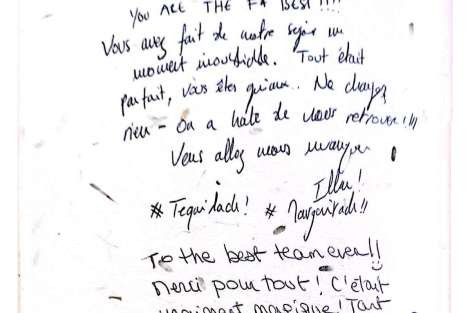 YOU ARE THE F* BEST!!!!
Vous avez fait de notre séjour un
moment inoubliable. Tout était
parfait, vous êtes géniaux. Ne changez
rien - On a hâte de vous retrouver!!!
Vous allez nous manquer
# Tequilach! #
To the best team ever!!
Merci pour tout! C'était
vraiment magique! Tant